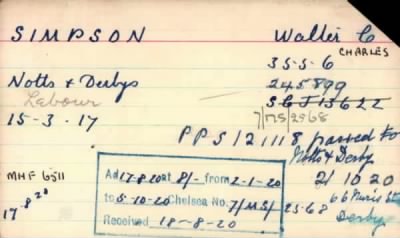 SIMPSON Walter C
CHARLES
35-5-6
Notts & Derbys 245899
Labour SGJ 13622
15-3-17 7/MS/2568
PPS 121118 passed to
Notts & Derby
MHF 6511 21 10 20
Ad 17-8-20 at 8/- from 2-1-20 66
17-8-20 to 5-10-20 Chelsea No. 7/MS/2568 Derby
Received 18-8-20